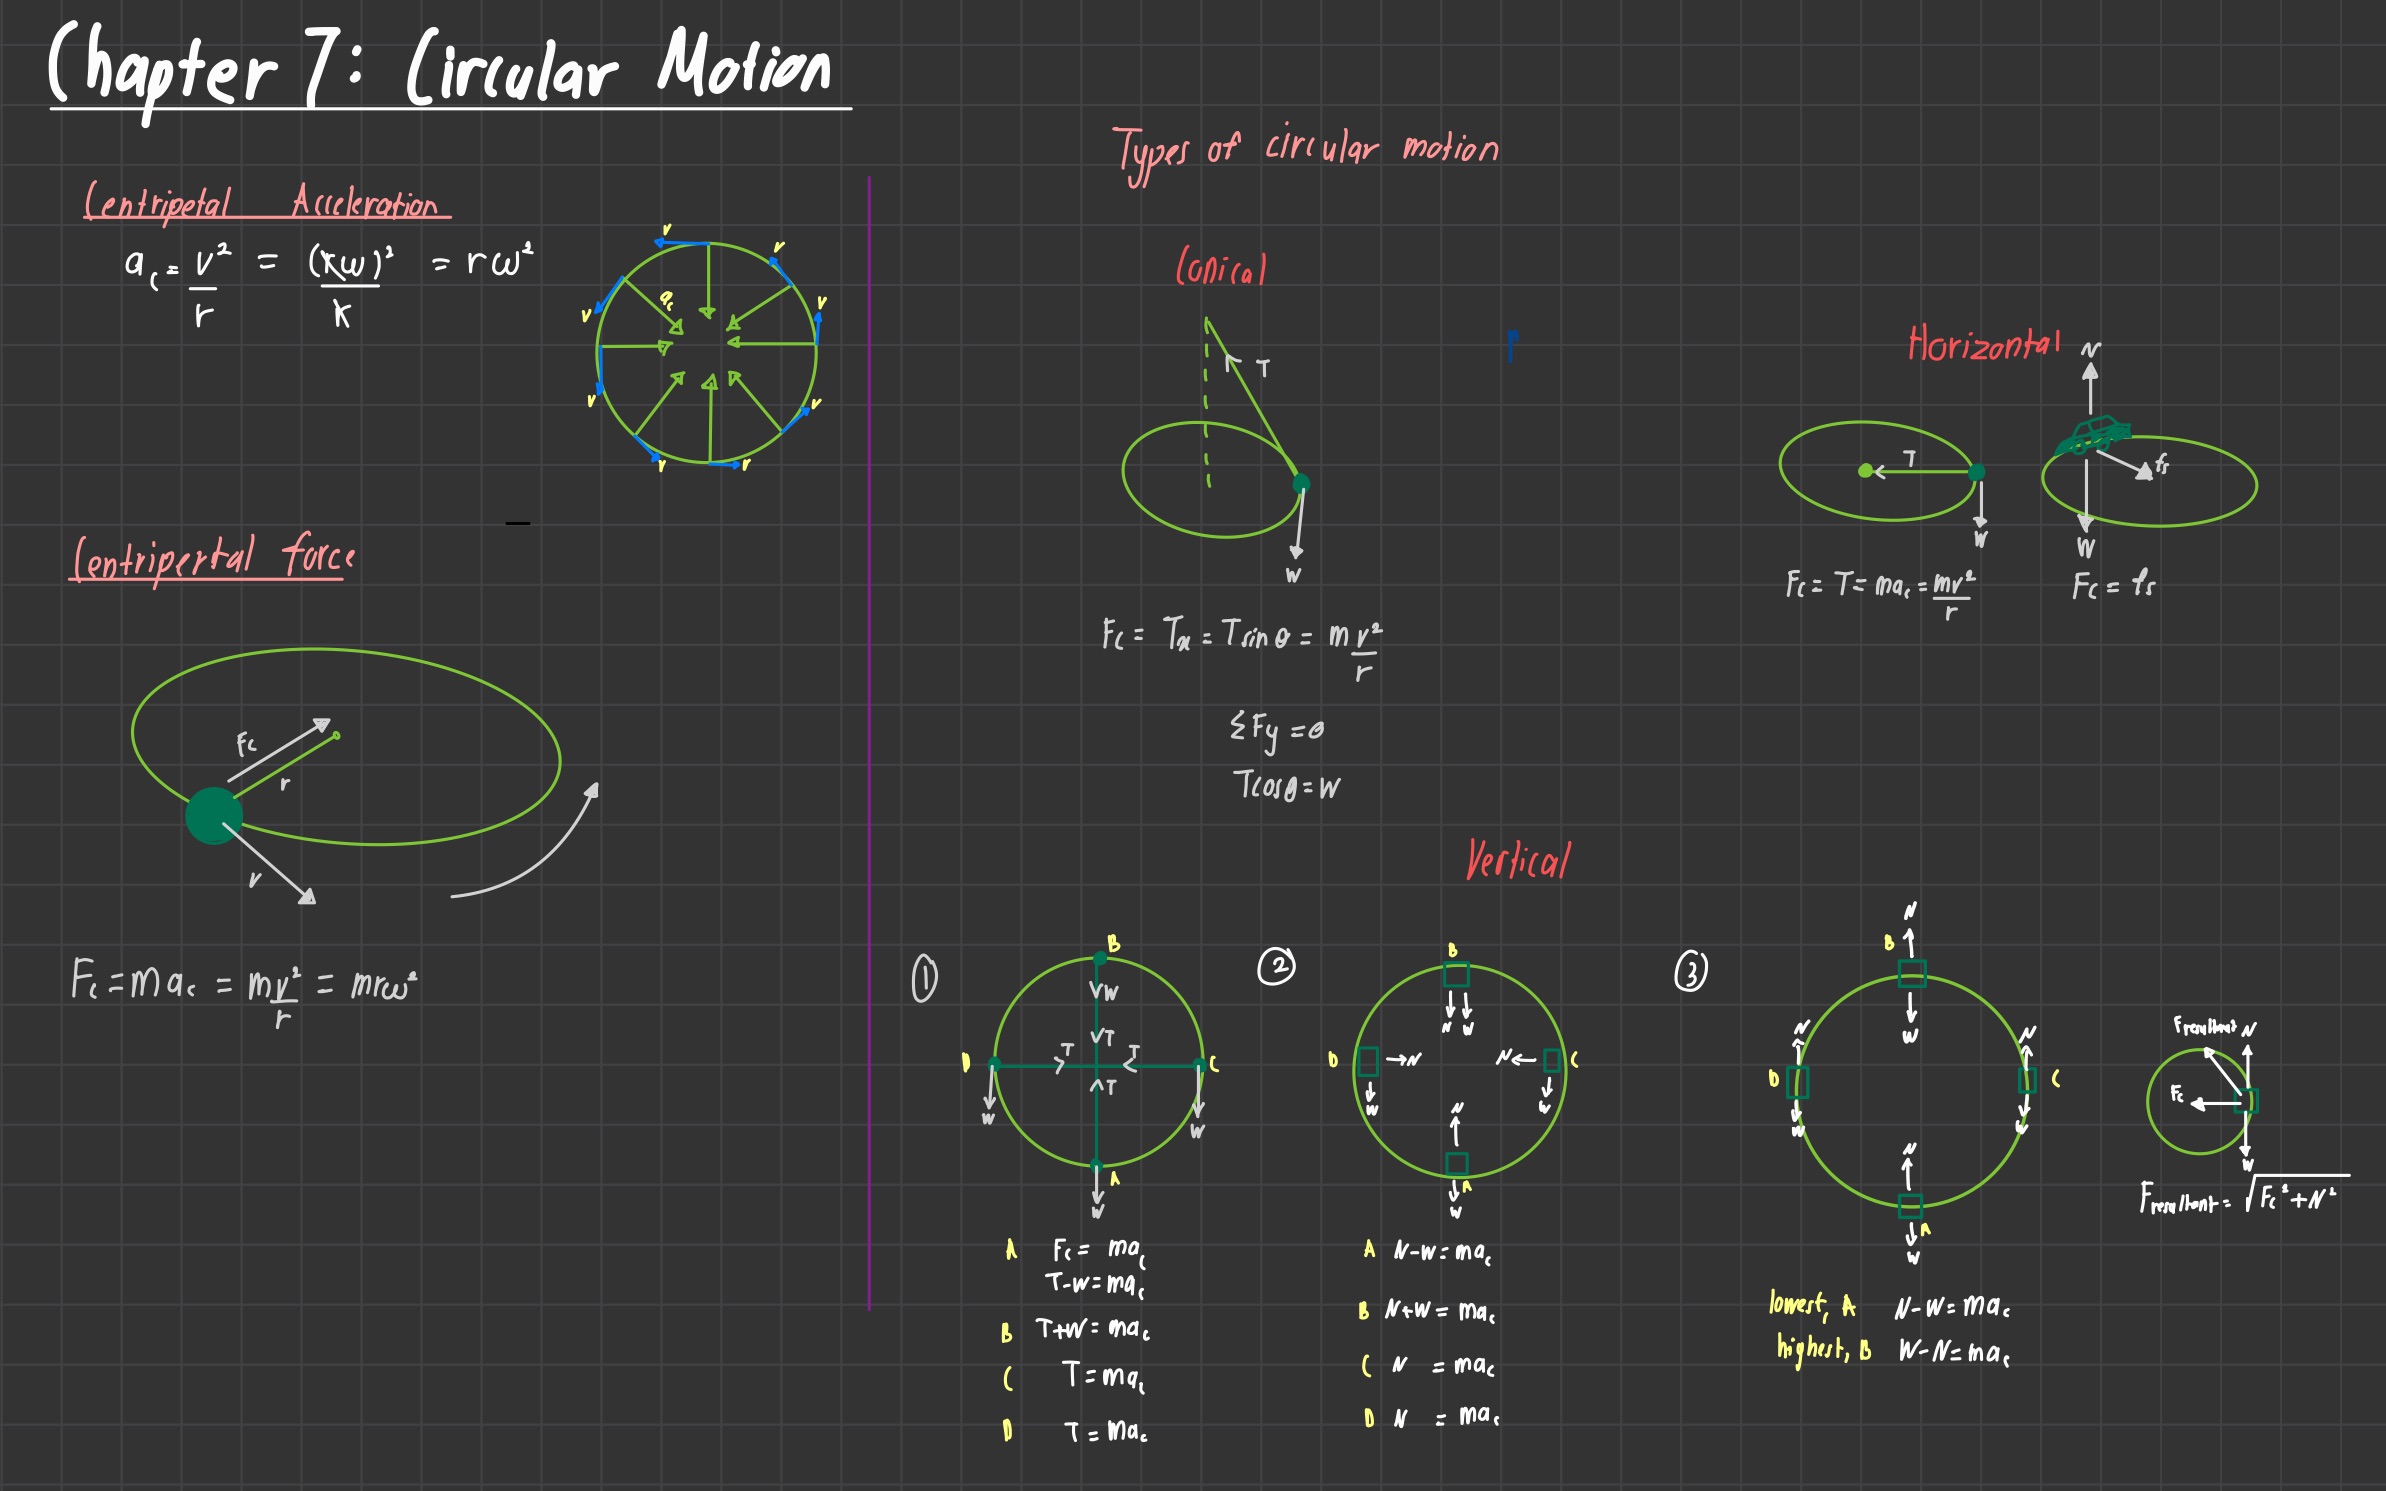 Chapter 7: Circular Motion
Centripetal Acceleration
a_c = v²/r = (rω)²/r = rω²
v
v
v
v
a_c
v
v
v
v
Centripertal force
Fc
r
v
Fc = ma_c = mv²/r = mrω²
Types of circular motion
Conical
T
W
Fc = Tx = Tsinθ = mv²/r
ΣFy = 0
Tcosθ = W
r
Horizontal
N
T
fs
W
W
Fc = T = ma_c = mv²/r
Fc = fs
Vertical
①
B
W
T
D
T
T
C
T
W
W
A
W
A Fc = ma_c
T-W = ma_c
B T+W = ma_c
C T = ma_c
D T = ma_c
②
B
N W
D
N
N
C
W
W
N
A
W
A N-W = ma_c
B N+W = ma_c
C N = ma_c
D N = ma_c
③
N
B
W
N
N
D
C
W
W
N
A
W
lowest, A N-W = ma_c
highest, B W-N = ma_c
Fresultant N
Fc
W
Fresultant = √(Fc²+N²)